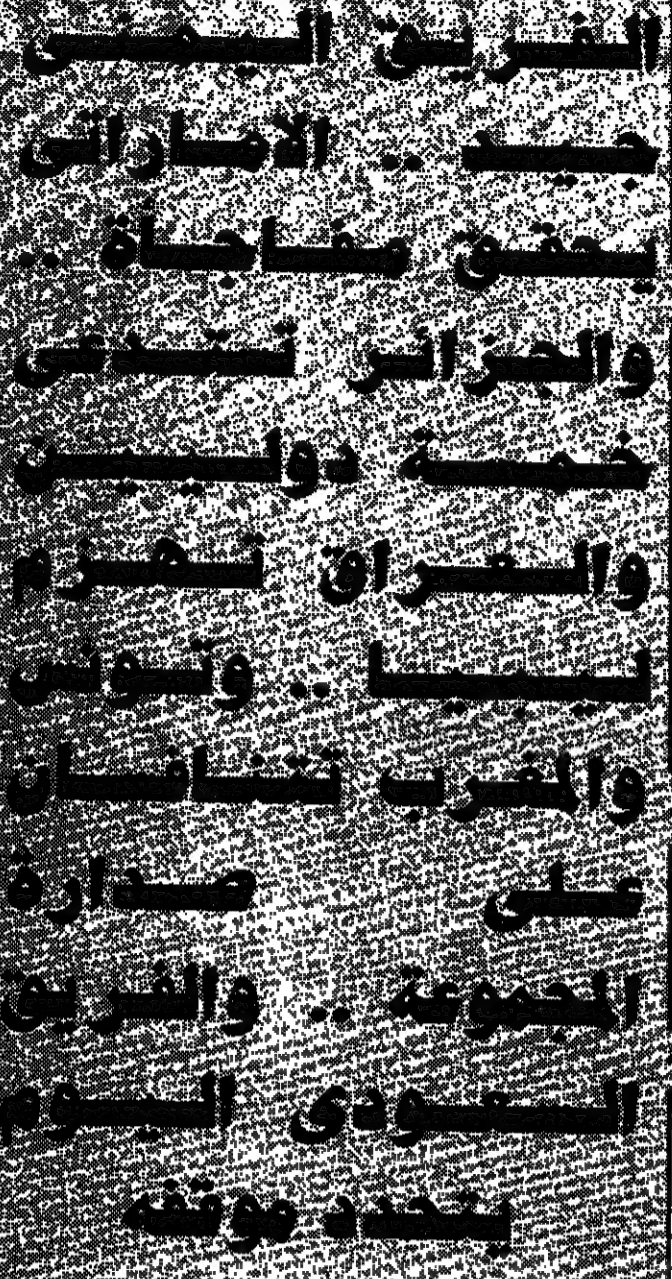 الفريق اليمني
جيد .. الاماراتي
يحقق مفاجأة ..
والجزائر تستدعي
خمسة دوليين
والعراق تهزم
ليبيا .. وتونس
والمغرب تتنافسان
على صدارة
المجموعة .. والفريق
السعودى اليوم
يتحدد موقفه